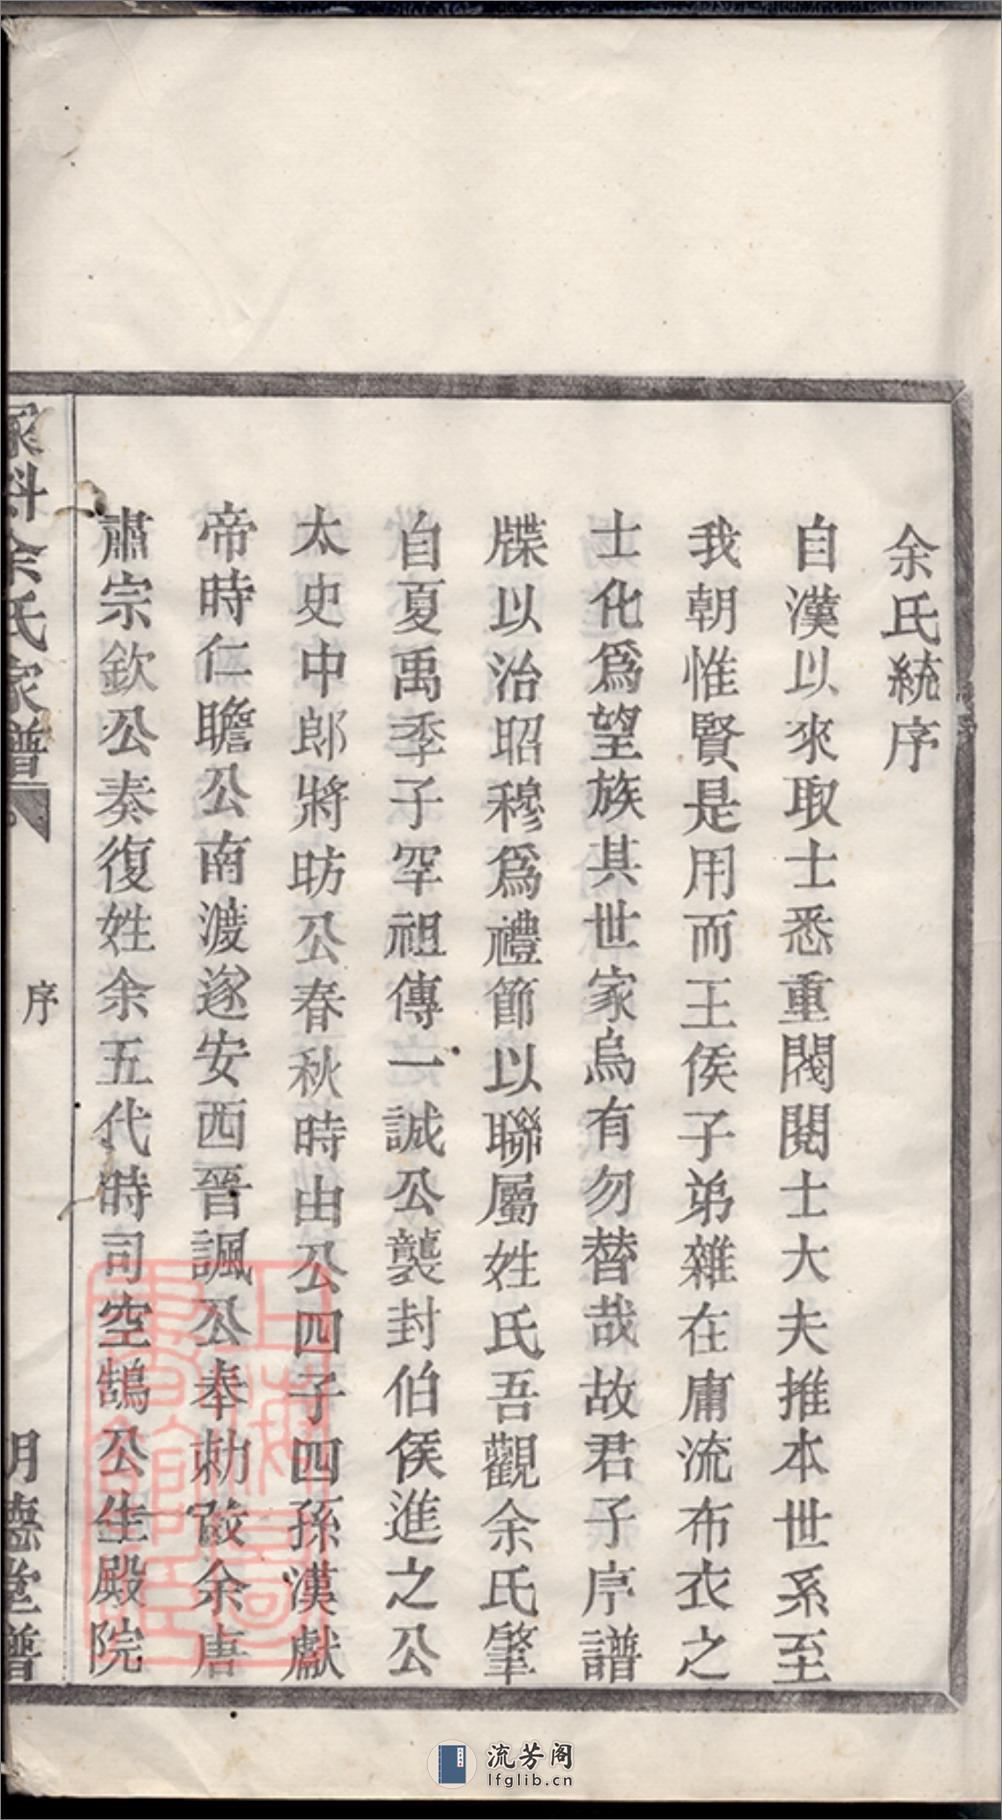 余氏統序
自漢以來取士悉重閥閱士大夫推本世系至
我朝惟賢是用而王侯子弟雜在庸流布衣之
士化爲望族其世家烏有勿替哉故君子序譜
牒以治昭穆爲禮節以聯屬姓氏吾觀余氏肇
自夏禹季子罕祖傳一誠公襲封伯侯進之公
太史中郎將昉公春秋時由公四子四孫漢獻
帝時仁瞻公南渡遂安西晉諷公奉勅改余唐
肅宗欽公奏復姓余五代時司空鵠公生殿院
冢斜余氏家譜
序
明德堂譜
上海圖書館藏
流芳阁
lfglib.cn